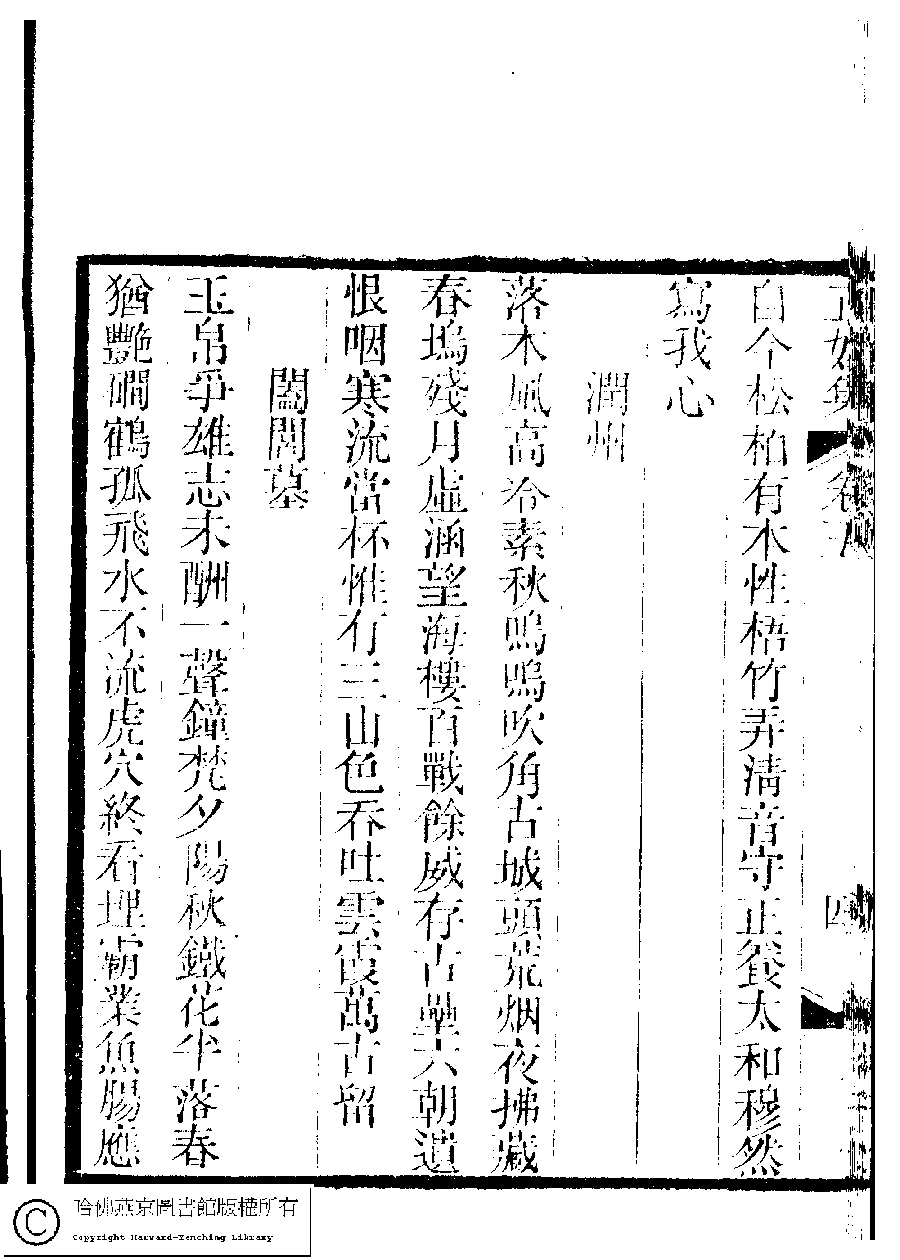 自今松柏有本性梧竹弄清音守正養太和穆然
寫我心
潤州
落木風高冷素秋嗚嗚吹角古城頭荒烟夜拂藏
春塢殘月虛涵望海樓百戰餘威存古壘六朝遺
恨咽寒流當杯惟有三山色吞吐雲霞萬古留
闔閭墓
玉帛爭雄志未酬一聲鐘梵夕陽秋鐵花半落春
猶艷磵鶴孤飛水不流虎穴終看埋霸業魚腸應
哈佛燕京圖書館版權所有
Copyright Harvard-Yenching Library